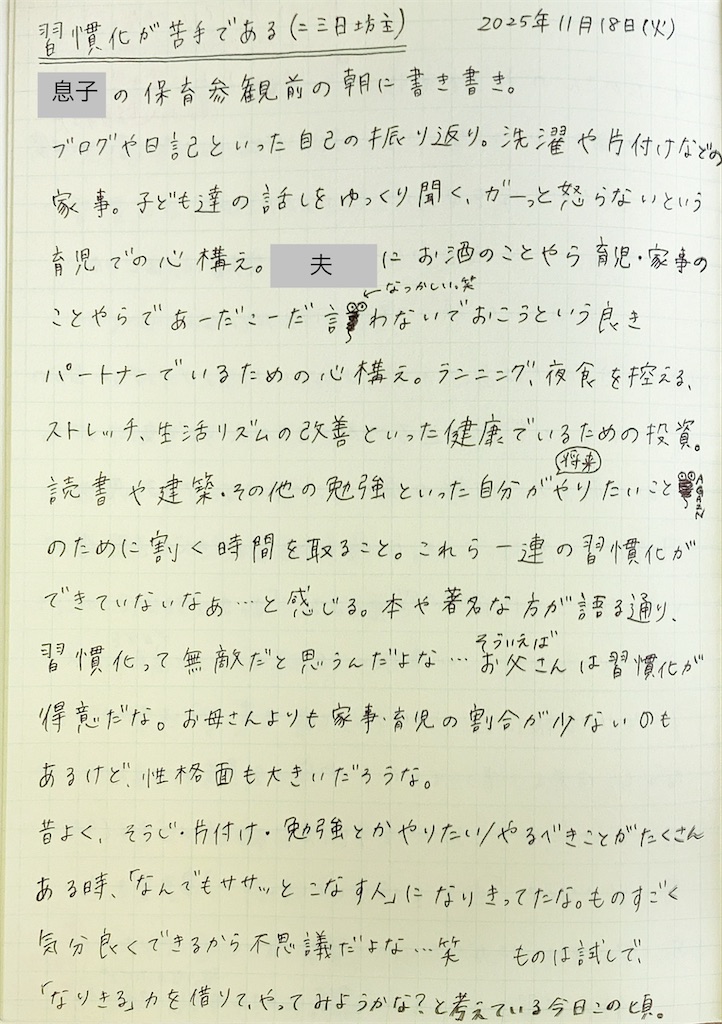 習慣化が苦手である(=三日坊主)
2025年11月18日(火)
息子の保育参観前の朝に書き書き。
ブログや日記といった自己の振り返り。洗濯や片付けなどの
家事。子ども達の話しをゆっくり聞く、ガーっと怒らないという
育児での心構え。夫にお酒のことやら育児・家事の
ことやらであーだこーだ言わないでおこうという良き
なつかしい。笑
パートナーでいるための心構え。ランニング、夜食を控える、
ストレッチ、生活リズムの改善といった健康でいるための投資。
読書や建築・その他の勉強といった自分が将来やりたいこと
AGAIN
のために割く時間を取ること。これら一連の習慣化が
できていないなぁ…と感じる。本や著名な方が語る通り、
習慣化って無敵だと思うんだよな…そういえばお父さんは習慣化が
得意だな。お母さんよりも家事・育児の割合が少ないのも
あるけど、性格面も大きいだろうな。
昔よく、そうじ・片付け・勉強とかやりたい/やるべきことがたくさん
ある時、「なんでもササッとこなす人」になりきってたな。ものすごく
気分良くできるから不思議だよな…笑 ものは試しで、
「なりきる」力を借りて、やってみようかな?と考えている今日この頃。